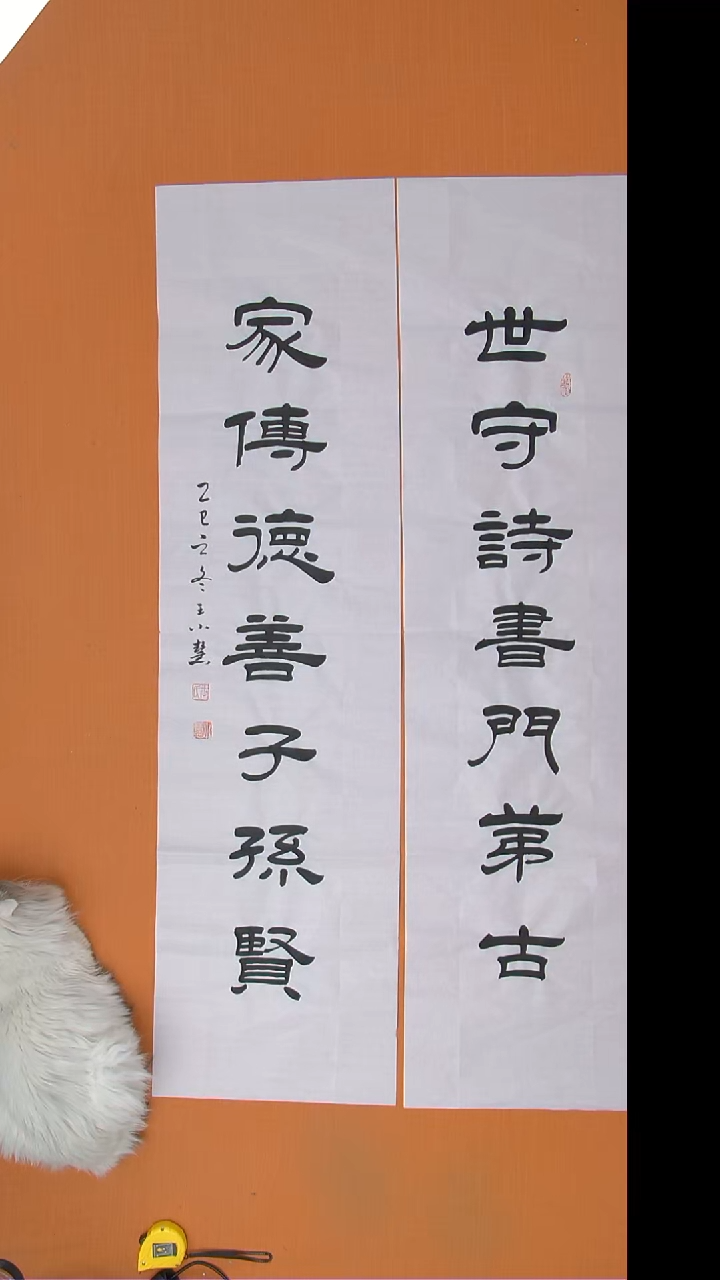 世守詩書門弟古
家傳德善子孫賢
乙巳立冬王小慧